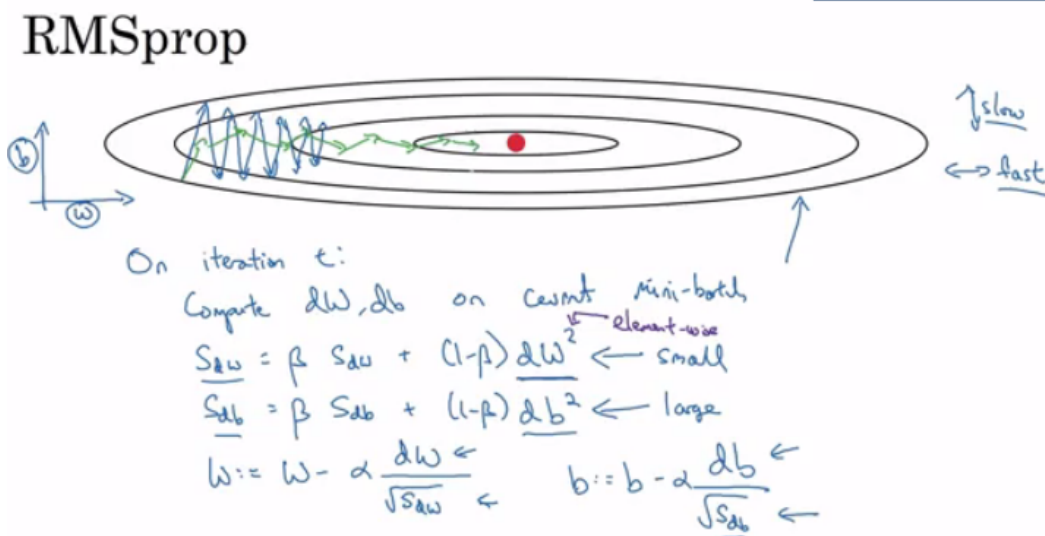 RMSprop
↕ slow
b
↔ fast
w
On iteration t:
Compute dW, db on current mini-batch
element-wise
S_dw = β S_dw + (1-β) dW² ← small
S_db = β S_db + (1-β) db² ← large
w := w - α dW/√S_dw ← b := b - α db/√S_db ←